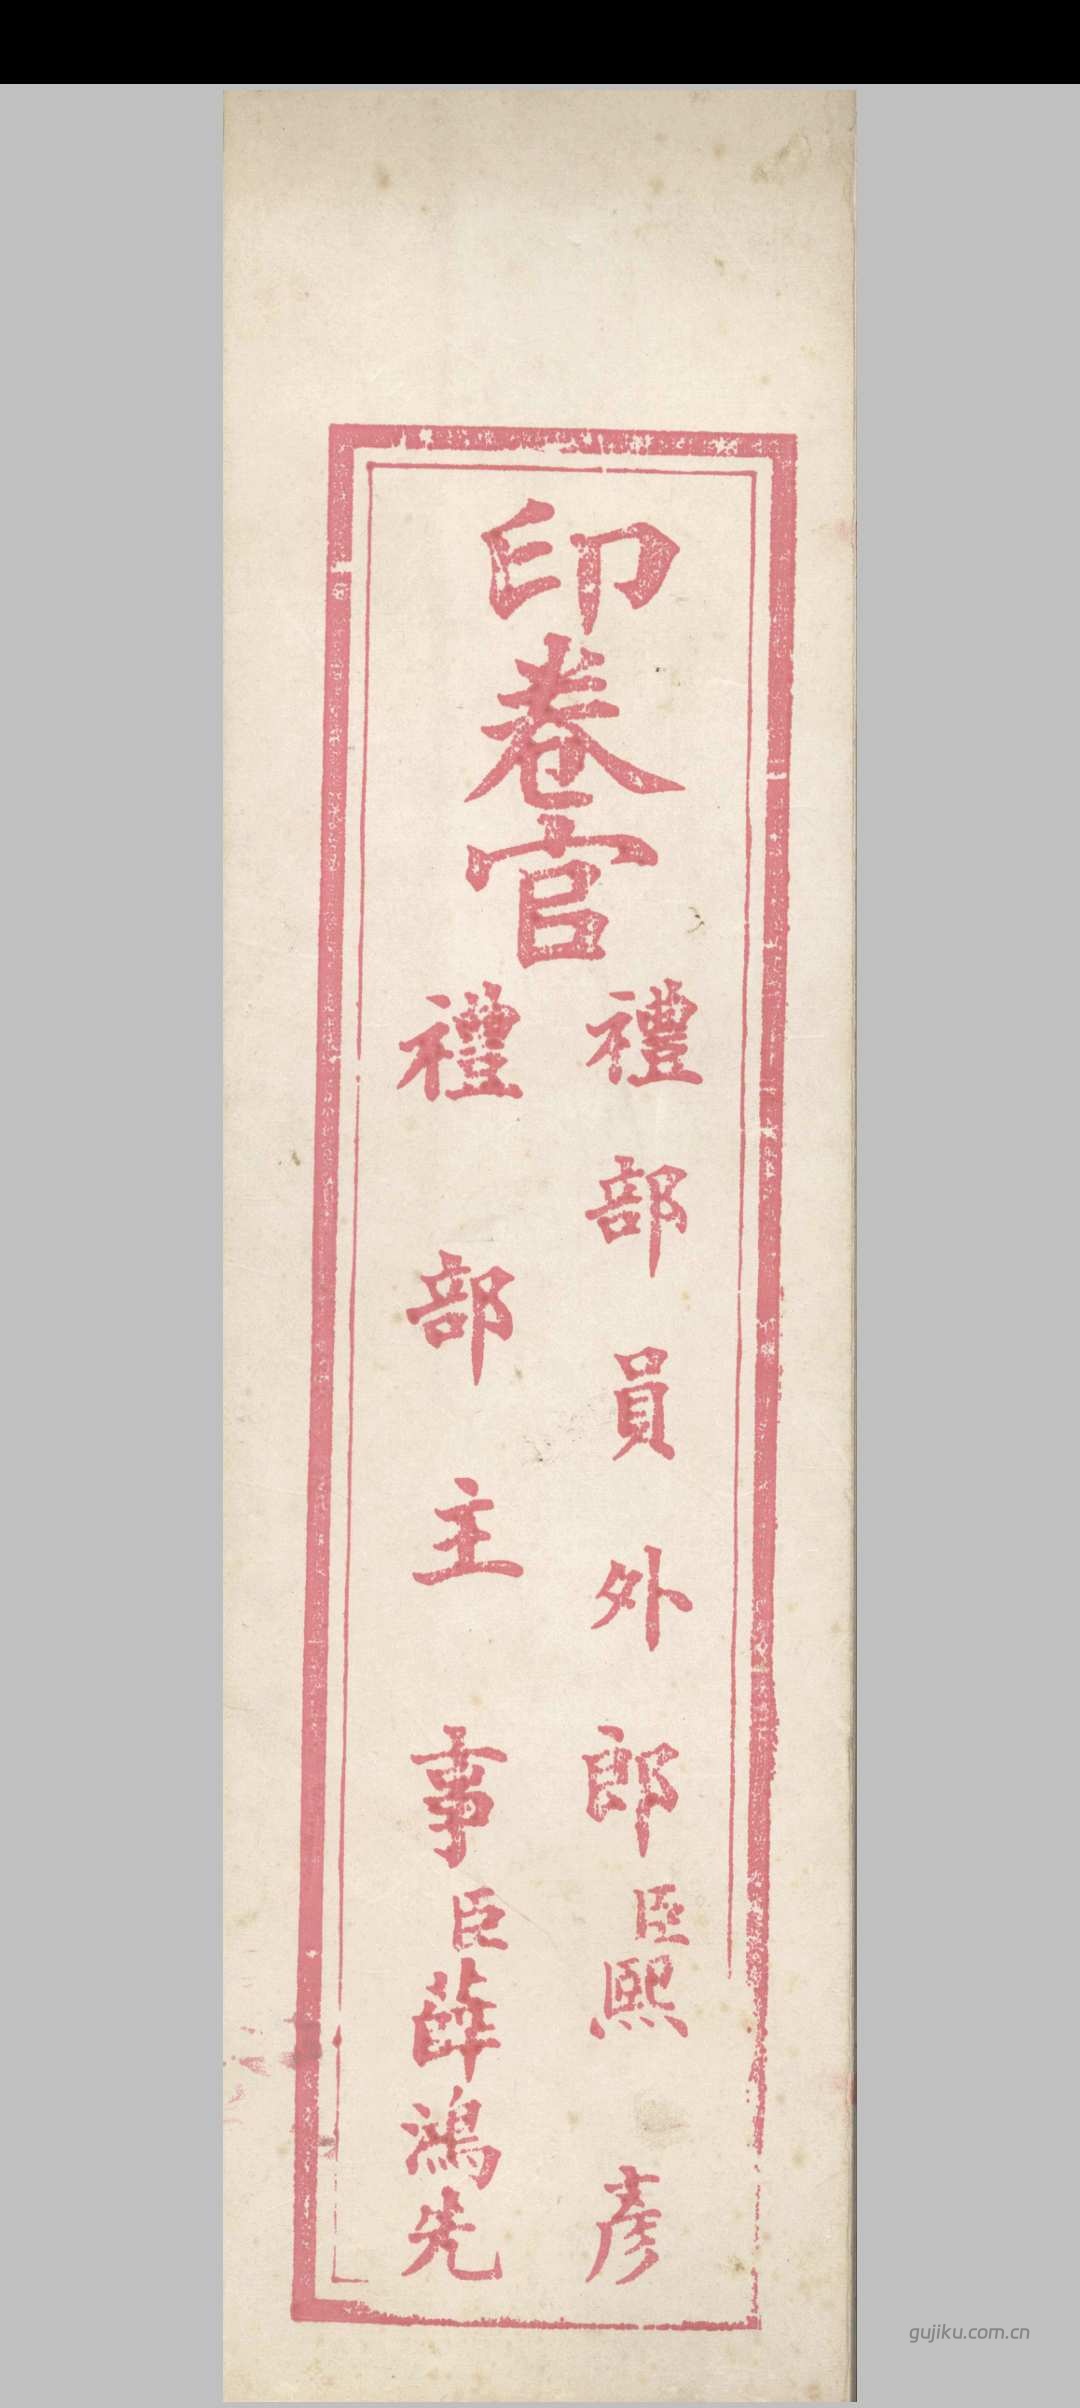 印卷官
禮部員外郎臣熙彥
禮部主事臣薛鴻先
gujiku.com.cn